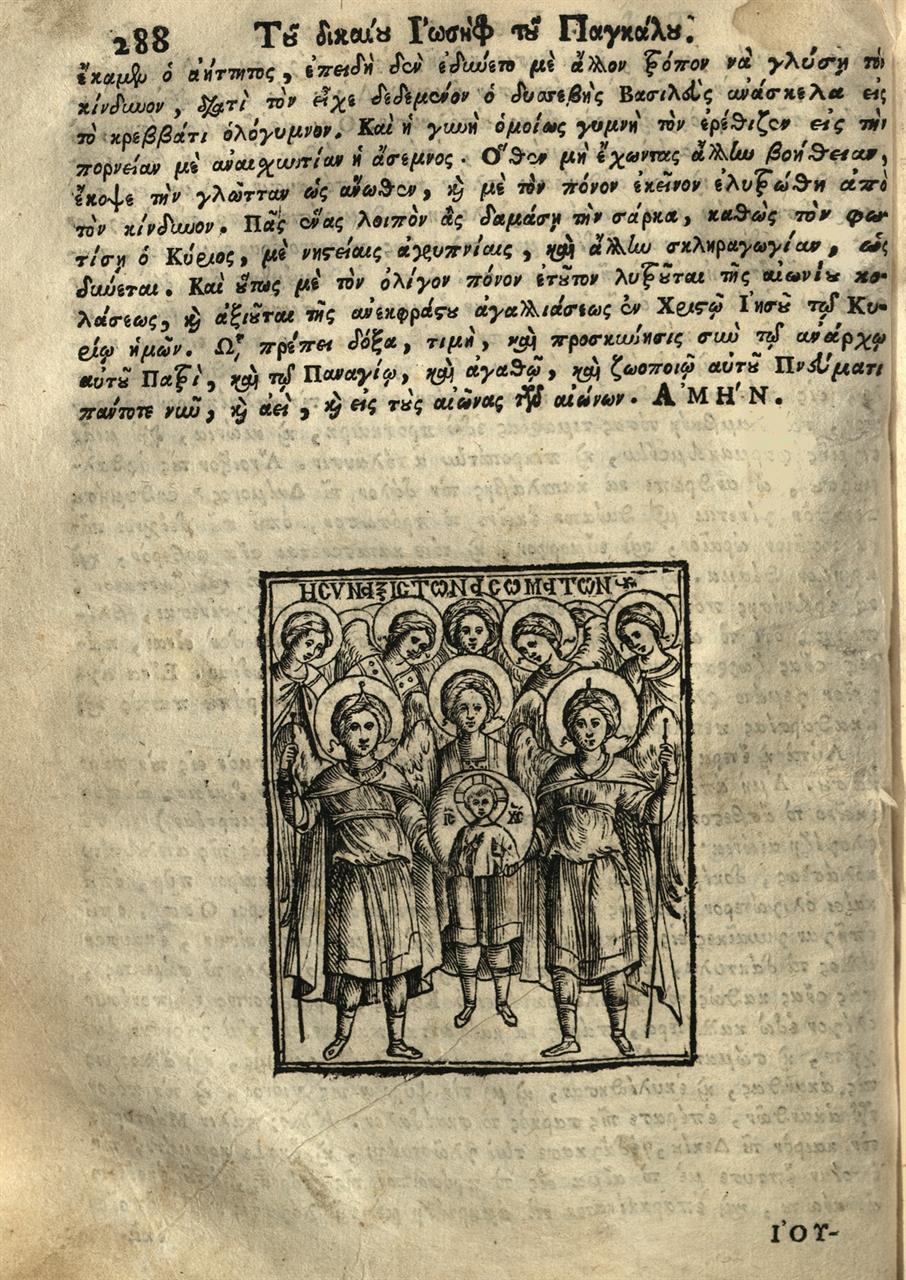 288 Τοῦ δικαίου Ἰωσὴφ τοῦ Παγκάλου.
ἔκαμεν ὁ ἀήττητος, ἐπειδὴ δὲν ἐδύνετο μὲ ἄλλον τρόπον νὰ γλύσῃ τὸν
κίνδυνον, διατὶ τὸν εἶχε δεδεμένον ὁ δυσσεβὴς Βασιλεὺς ἀνάσκελα εἰς
τὸ κρεββάτι ὁλόγυμνον. Καὶ ἡ γυνὴ ὁμοίως γυμνὴ τὸν ἐρέθιζεν εἰς τὴν
πορνείαν μὲ ἀναισχυντίαν ἡ ἄσεμνος. Ὅθεν μὴ ἔχωντας ἄλλην βοήθειαν,
ἔκοψε τὴν γλῶτταν ὡς ἄνωθεν, καὶ μὲ τὸν πόνον ἐκεῖνον ἐλυτρώθη ἀπὸ
τὸν κίνδυνον. Πᾶς ἕνας λοιπὸν ἂς δαμάσῃ τὴν σάρκα, καθὼς τὸν φω-
τίσῃ ὁ Κύριος, μὲ νηστείαις ἀγρυπνίαις, καὶ ἄλλην σκληραγωγίαν, ὡς
δύνεται. Καὶ οὕτως μὲ τὸν ὀλίγον πόνον ἐτοῦτον λυτροῦται τῆς αἰωνίου κο-
λάσεως, καὶ ἀξιοῦται τῆς ἀνεκφράστου ἀγαλλιάσεως ἐν Χριστῷ Ἰησοῦ τῷ Κυ-
ρίῳ ἡμῶν. Ὧ πρέπει δόξα, τιμὴ, καὶ προσκύνησις σὺν τῷ ἀνάρχῳ
αὐτοῦ Πατρὶ, καὶ τῷ Παναγίῳ, καὶ ἀγαθῷ, καὶ ζωοποιῷ αὐτοῦ Πνεύματι
πάντοτε νῦν, καὶ ἀεὶ, καὶ εἰς τοὺς αἰῶνας τῶν αἰώνων. ἈΜΉΝ.
ΗϹΥΝΑΞΙϹΤΩΝΑϹΩΜΑΤΩΝ
ΙϹ ΧϹ
ἸΟΥ-